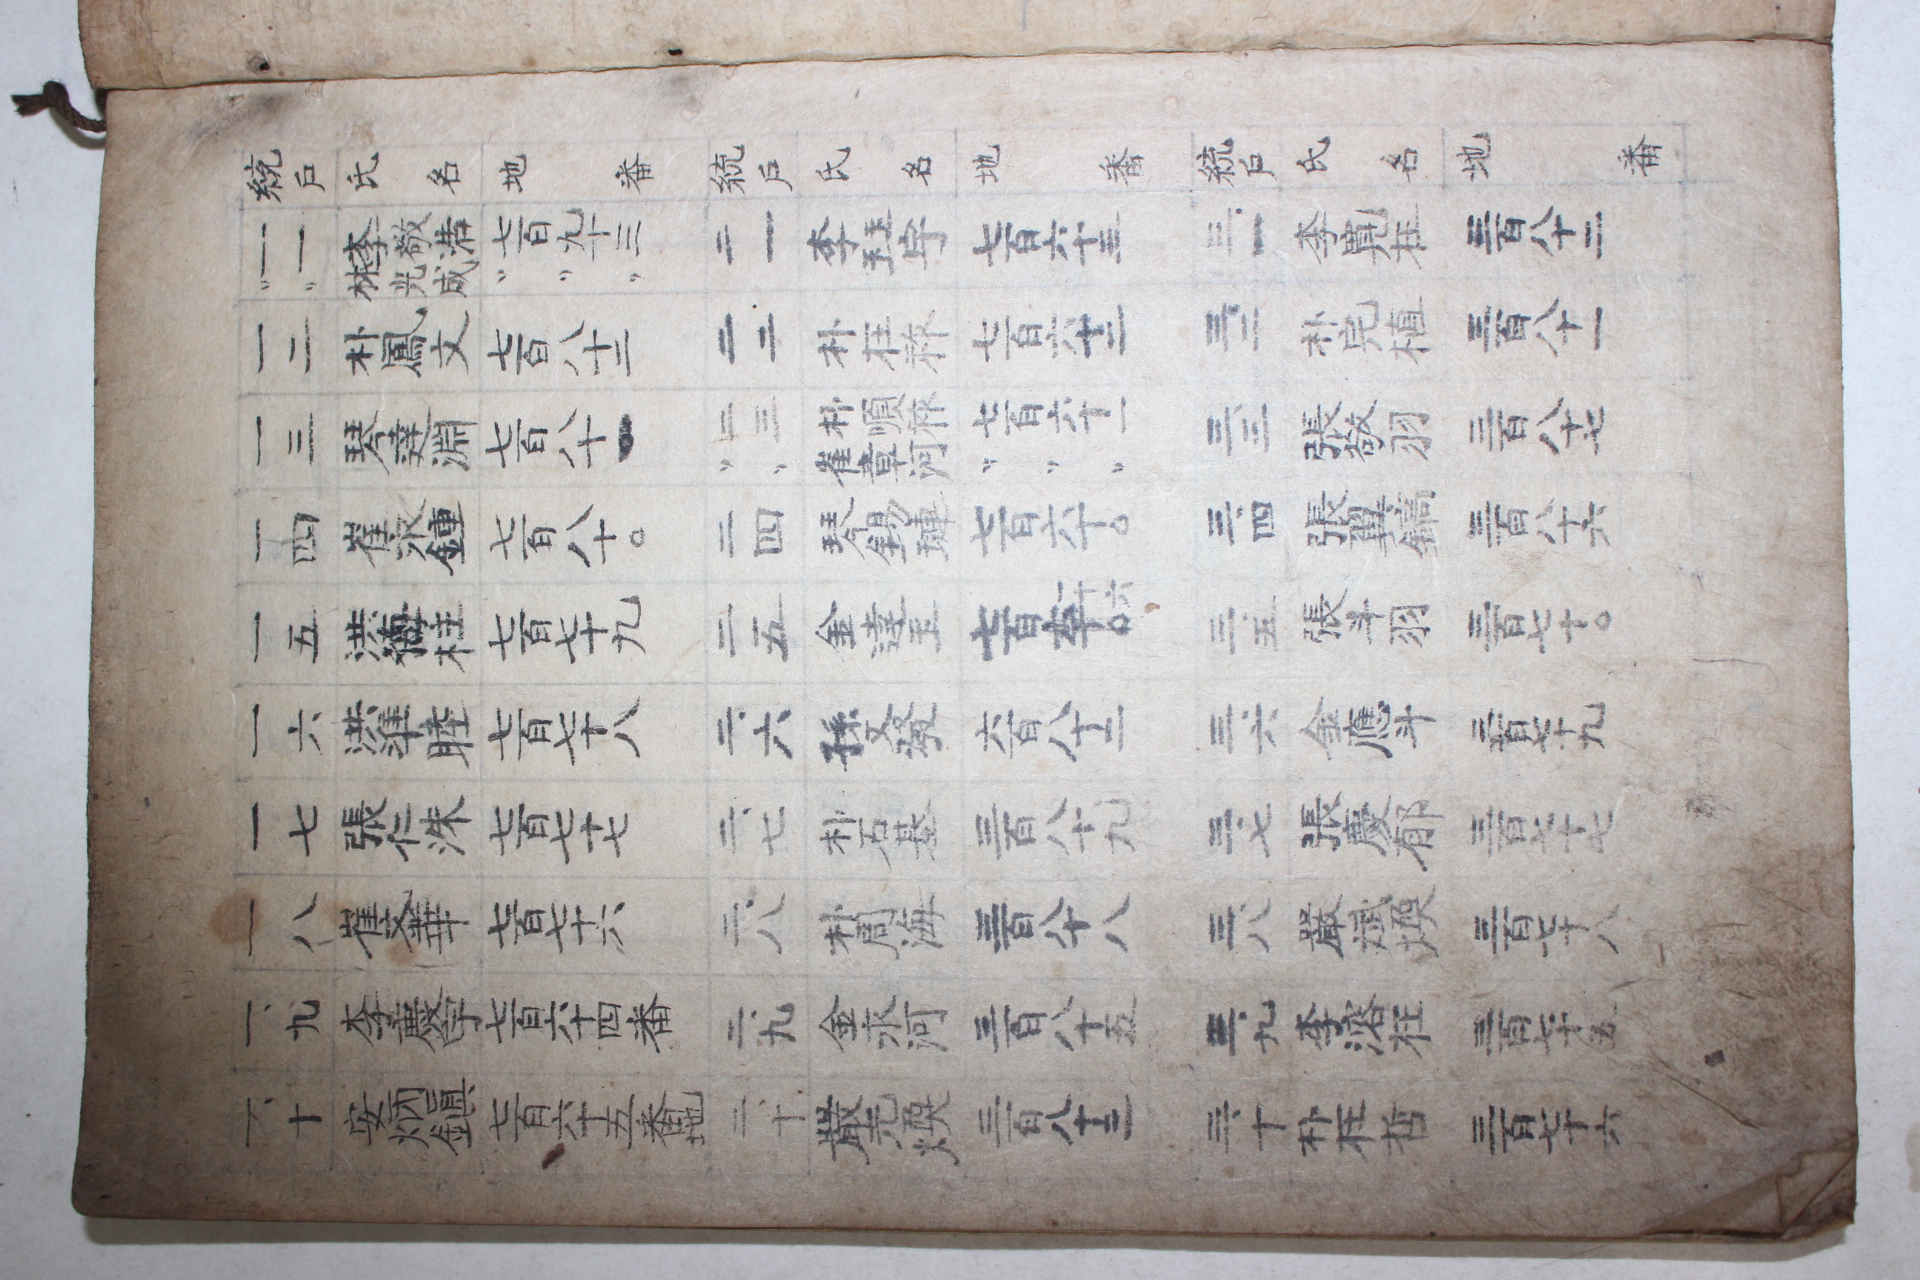 統戶 氏名 地番 統戶 氏名 地番 統戶 氏名 地番
一一 李敬浩 七百九十三 二一 李珏宇 七百六十三 三一 李寬柱 三百八十二
〃〃 林光成 〃〃〃
一二 朴鳳文 七百八十三 二二 朴在秾 七百六十二 三二 朴完植 三百八十一
一三 琴達淵 七百八十 二三 朴順 七百六十一 三三 張敬羽 三百八十七
〃〃 崔章河 〃〃〃
一四 崔永鍾 七百八十。 二四 琴錫璉 七百六十。 三四 張翼鎬 三百八十六
一五 洪海柱 七百七十九 二五 金達玉 七百 三五 張斗羽 三百七十。
一六 洪準睦 七百七十八 二六 孫文發 六百八十二 三六 金應斗 三百七十九
一七 張仁洙 七百七十七 二七 朴伍基 三百八十九 三七 張慶郁 三百七十七
一八 崔文華 七百七十六 二八 朴周海 三百八十八 三八 嚴斌煥 三百七十八
一九 李慶宇 七百六十四番 二九 金永河 三百八十五 三九 李溶在 三百七十五
一十 安炳鎭 七百六十五番地 二十 嚴元煥 三百八十三 三十 朴在哲 三百七十六